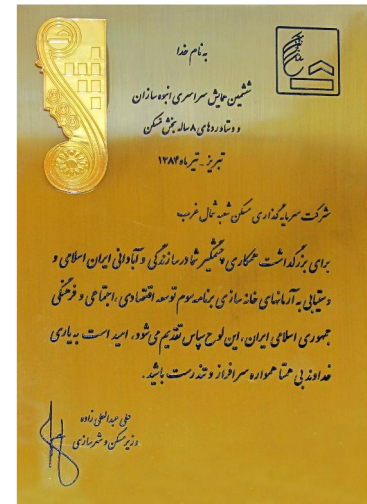 به نام خدا
ششمین همایش سراسری انبوه سازان
و دستاوردهای ۸ ساله بخش مسکن
تبریز - تیر ماه ۱۳۸۴
شرکت سرمایه گذاری مسکن شعبه شمال غرب
برای بزرگداشت همکاری چشمگیر شما در سازندگی و آبادانی ایران اسلامی و
دستیابی به آرمانهای خانه سازی برنامه سوم توسعه اقتصادی، اجتماعی و فرهنگی
جمهوری اسلامی ایران، این لوح سپاس تقدیم می‌شود، امید است به یاری
خداوند بی همتا همواره سرافراز و تندرست باشید.
علی عبدالعلی زاده
وزیر مسکن و شهرسازی